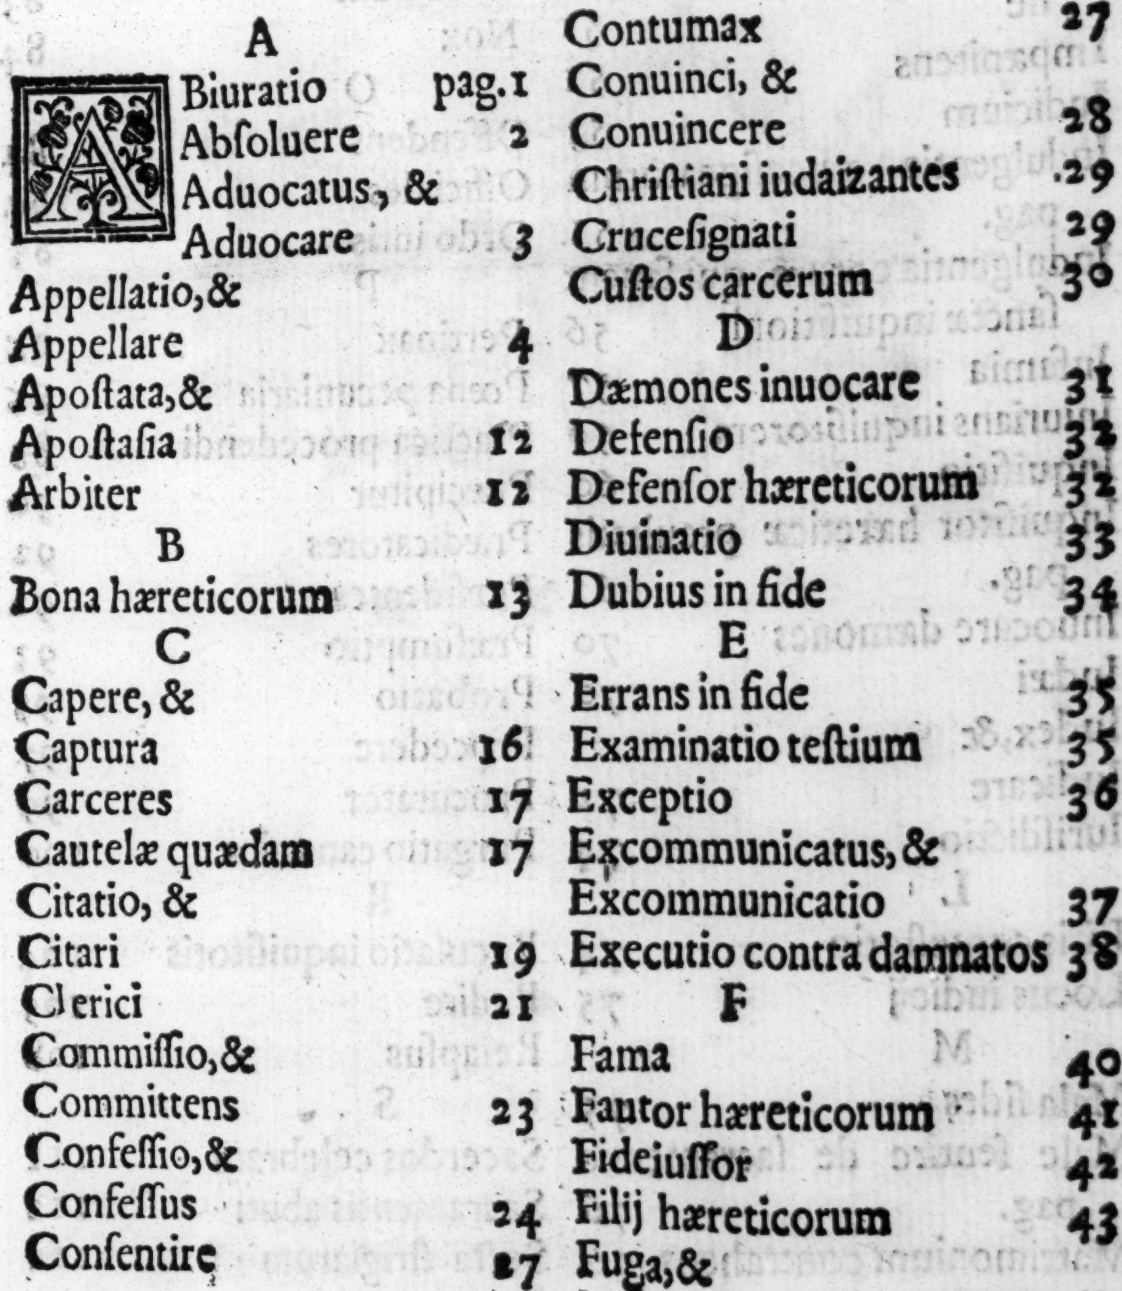 A
ABiuratio pag.1
Abſoluere 2
Aduocatus, &
Aduocare 3
Appellatio, &
Appellare 4
Apoſtata, &
Apoſtaſia 12
Arbiter 12
B
Bona hæreticorum 13
C
Capere, &
Captura 16
Carceres 17
Cautelæ quædam 17
Citatio, &
Citari 19
Clerici 21
Commiſſio, &
Committens 23
Confeſſio, &
Confeſſus 24
Conſentire 27
Contumax 27
Conuinci, &
Conuincere 28
Chriſtiani iudaizantes 29
Cruceſignati 29
Cuſtos carcerum 30
D
Dæmones inuocare 31
Defenſio 32
Defenſor hæreticorum 32
Diuinatio 33
Dubius in fide 34
E
Errans in fide 35
Examinatio teſtium 35
Exceptio 36
Excommunicatus, &
Excommunicatio 37
Executio contra damnatos 38
F
Fama 40
Fautor hæreticorum 41
Fideiuſſor 42
Filij hæreticorum 43
Fuga, &